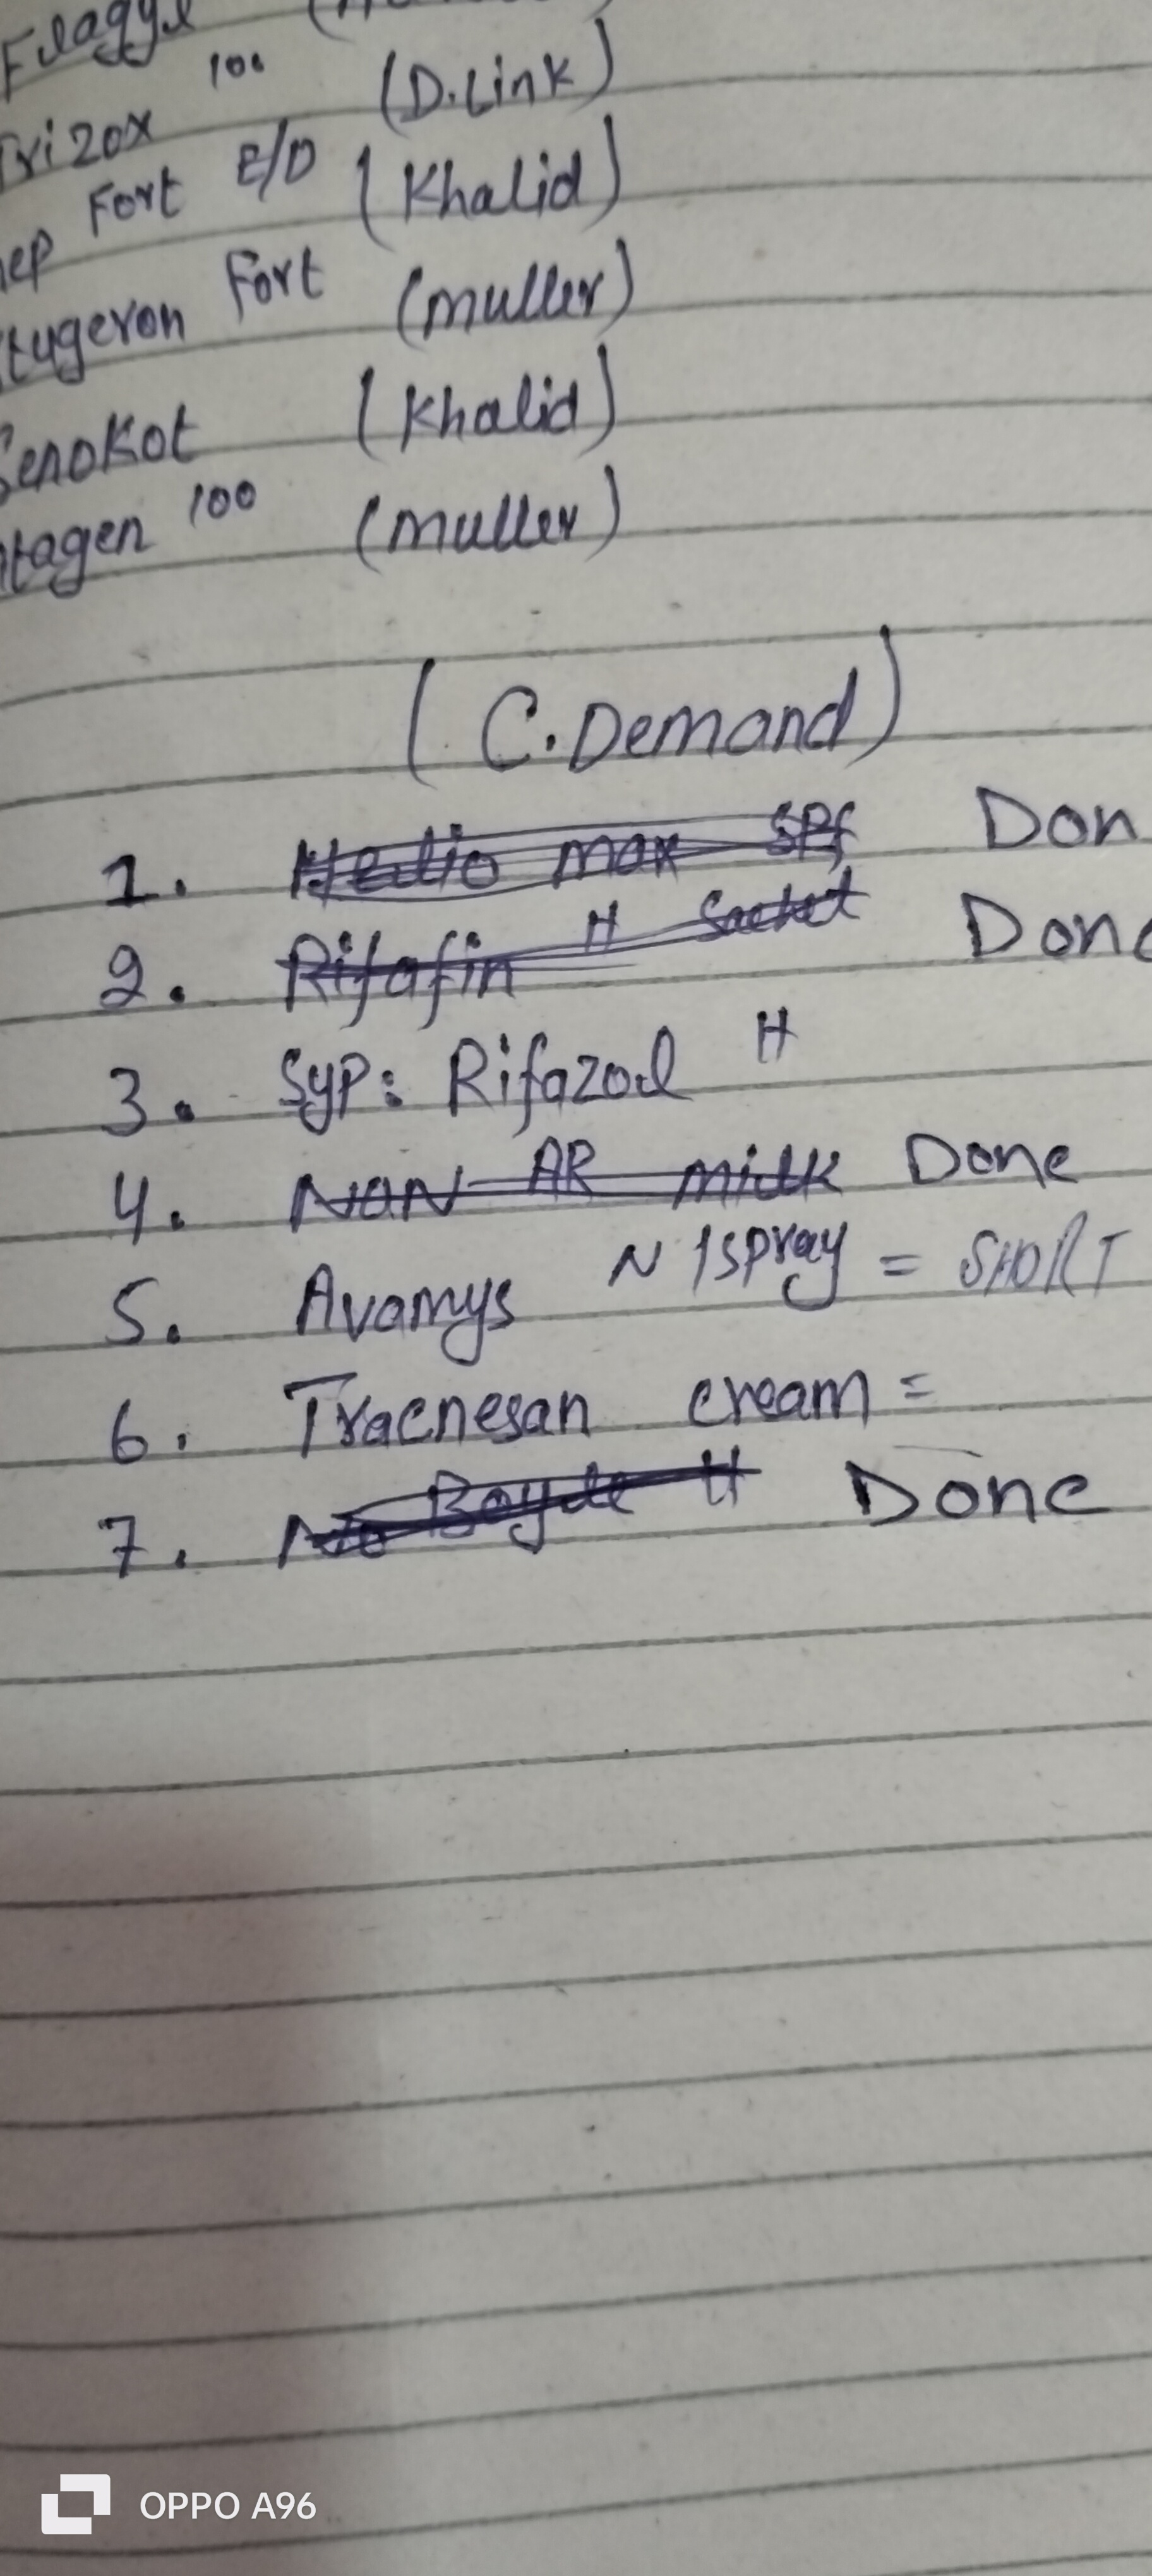 Flagyl
Trizox 100 (D.Link)
Fort E/D (Khalid)
tugeron Fort (muller)
Senokot (Khalid)
tagen 100 (muller)
(C.Demand)
1. Helio max SPf Don
2. Rifafin H Sachet Done
3. Syp: Rifazol H
4. NAN AR milk Done
5. Avamys N/spray = SHORT
6. Tracnesan cream =
7. No Done
OPPO A96